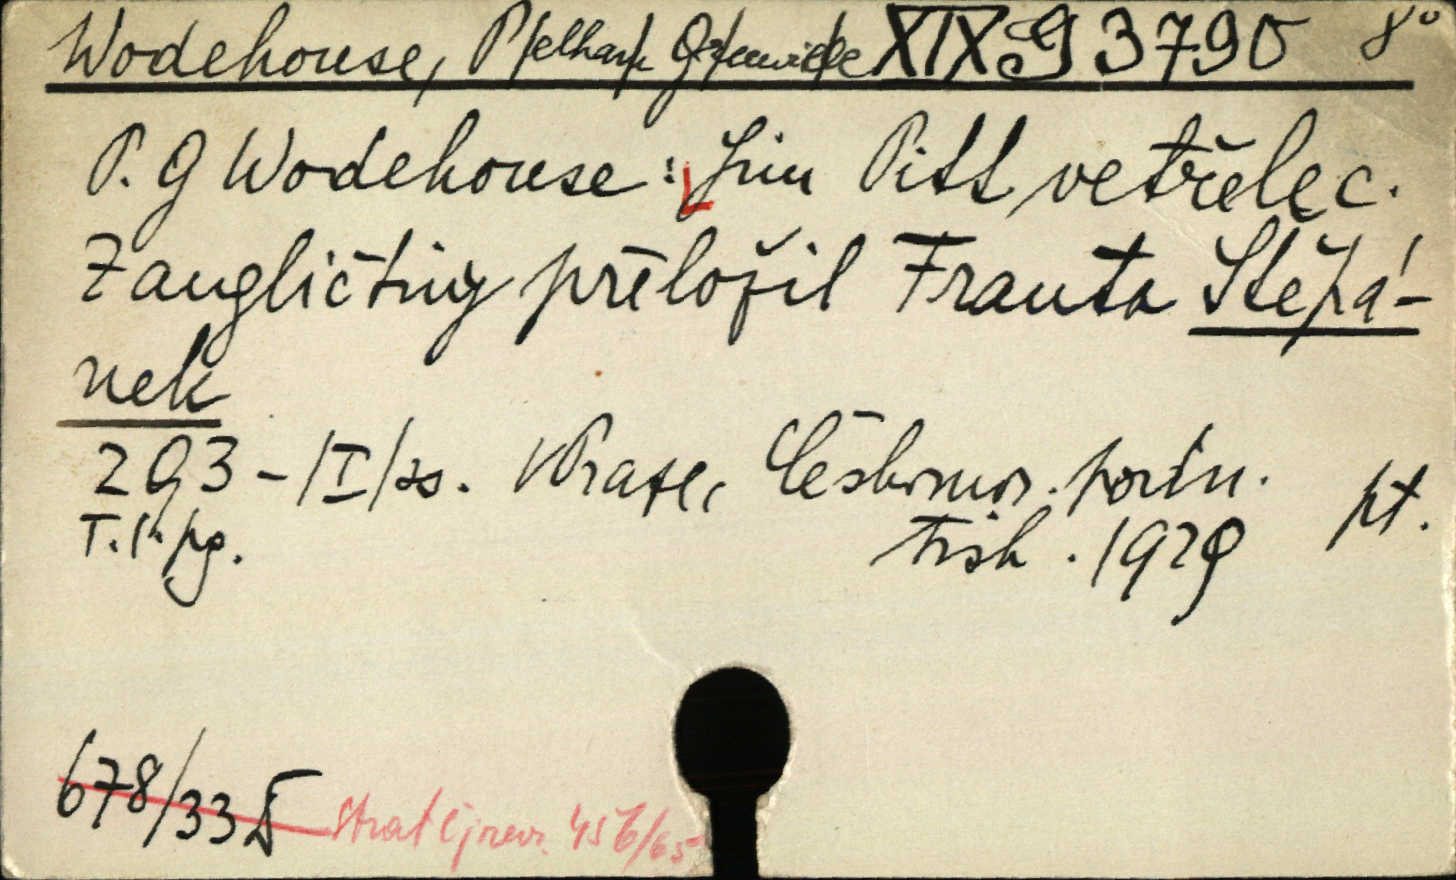 Wodehouse, P/elham/ G/renwille XIX G 3790 8°
P. G Wodehouse: Jim Pitt vetřelec.
Z angličtiny přeložil Franta Štěpá-
nek
293-/I/ss. V Praze, Českomor. podn.
T. l. pg. tisk. 1929 pt.
678/33 Š Strat č j rev. 456/65